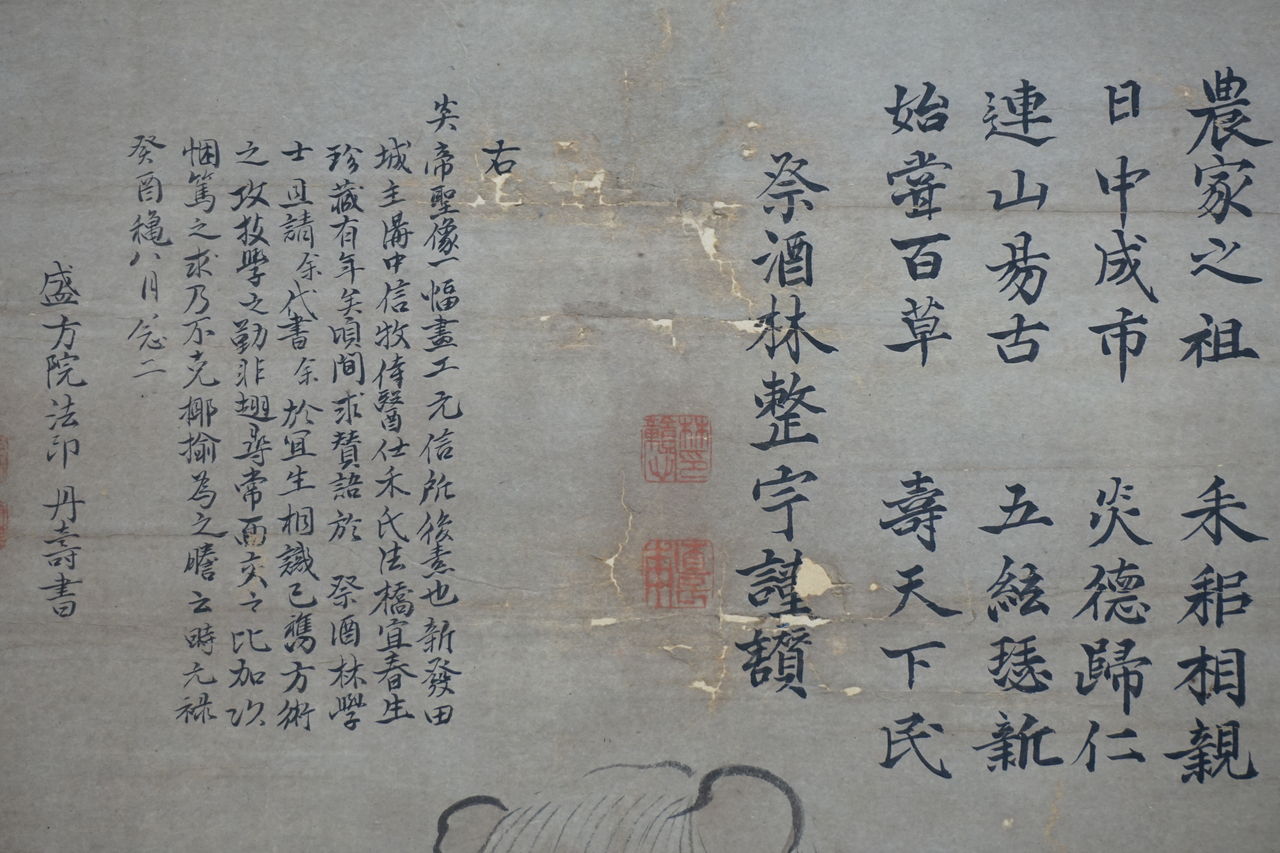 農家之祖 耒耜相親
日中成市 炎德歸仁
連山易古 五絃瑟新
始嘗百草 壽天下民
祭酒林整宇謹讚
右
炎帝聖像一幅畫工元信所後素也新發田
城主溝中信牧侍醫仕禾氏法橋宜春生
珍藏有年矣頃間求賛語於 祭酒林學
士且請余代書余於宜生相識已舊方術
之攻技學之勤非趐尋常面交之比加以
悃篤之求乃不克揶揄為之贍云時元禄
癸酉龝八月念二
盛方院法印 丹壽書